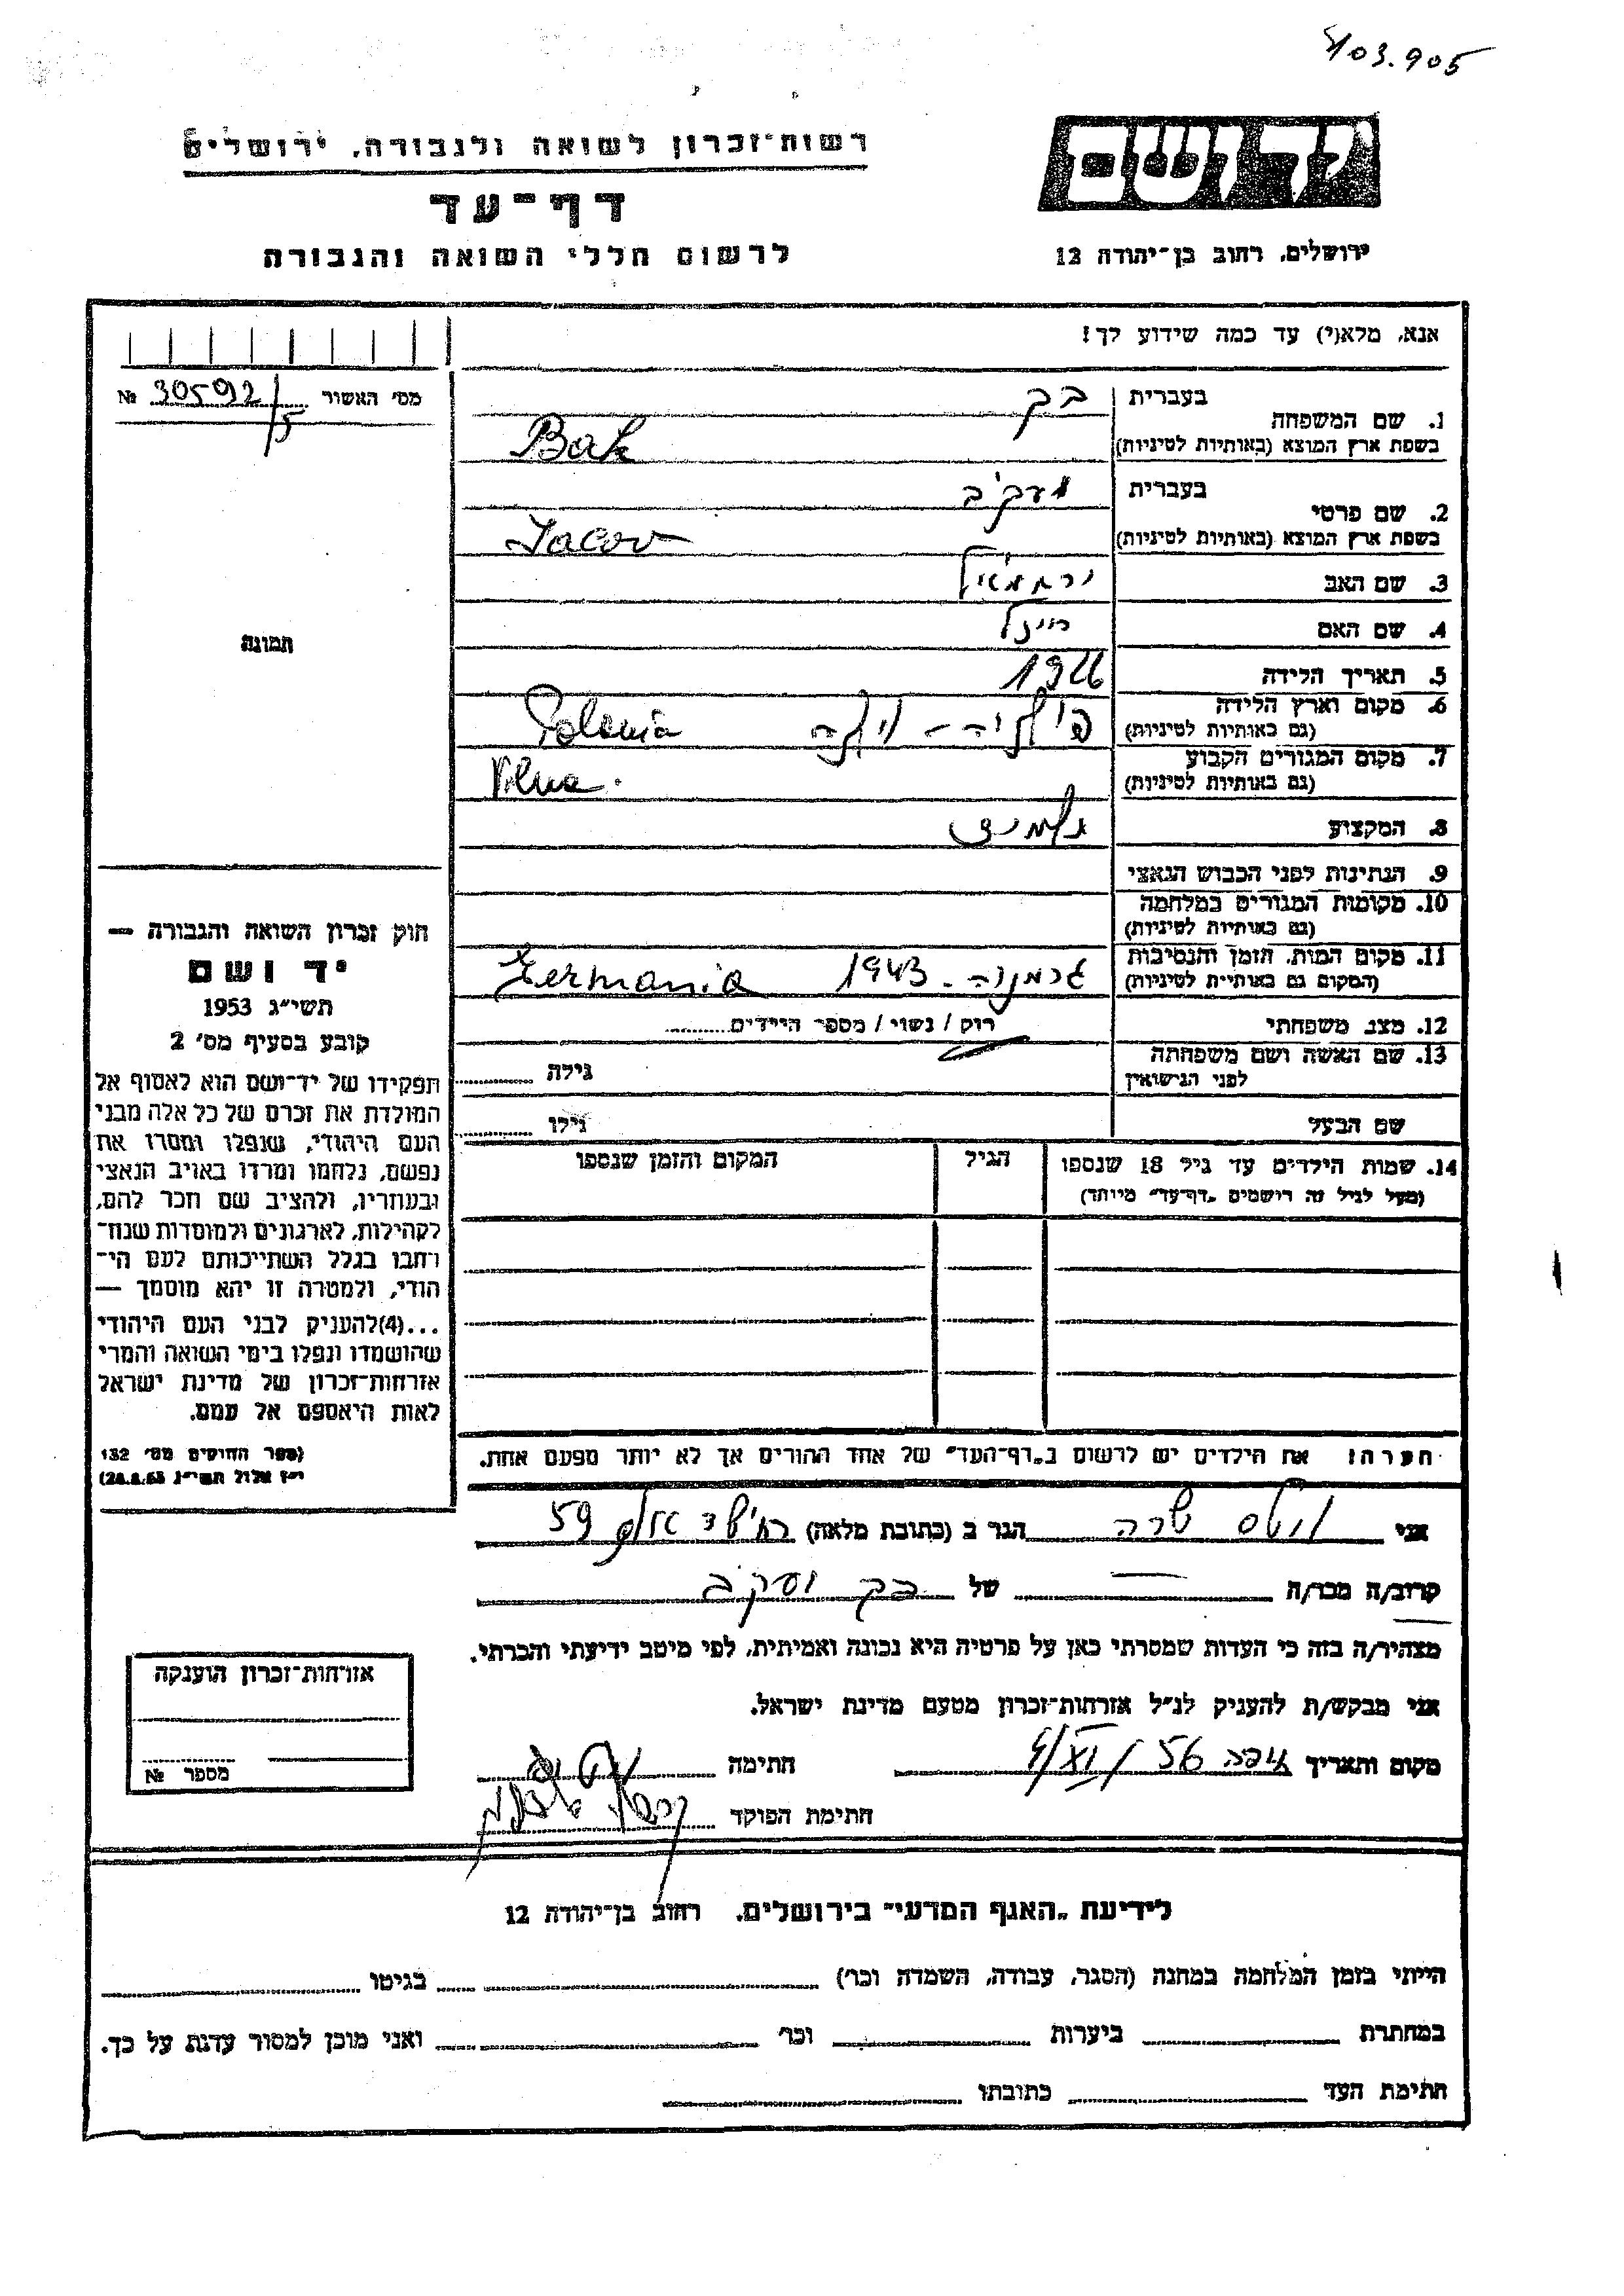 103.905
יד ושם
ירושלים, רחוב בן־יהודה 12
רשות־זכרון לשואה ולגבורה, ירושלים
דף־עד
לרשום חללי השואה והגבורה
אנא, מלא(י) עד כמה שידוע לך!
מס׳ האשור 30592/5 №
תמונה
1. שם המשפחה
בעברית בק
בשפת ארץ המוצא (באותיות לטיניות) Bak
2. שם פרטי
בעברית יעקב
בשפת ארץ המוצא (באותיות לטיניות) Jacov
3. שם האב ירחמיאל
4. שם האם
5. תאריך הלידה 1926
6. מקום וארץ הלידה פולניה - וילנה Polonia
(גם באותיות לטיניות)
7. מקום המגורים הקבוע Vilna.
(גם באותיות לטיניות)
8. המקצוע תלמיד
9. הנתינות לפני הכבוש הנאצי
10. מקומות המגורים במלחמה
(גם באותיות לטיניות)
11. מקום המות, הזמן והנסיבות גרמניה. 1943 Germania
(המקום גם באותיות לטיניות)
12. מצב משפחתי רוק / נשוי / מספר הילדים
13. שם האשה ושם משפחתה גילה
לפני הנישואין
שם הבעל גילו
14. שמות הילדים עד גיל 18 שנספו הגיל המקום והזמן שנספו
(מעל לגיל זה רושמים „דף־עד״ מיוחד)
חוק זכרון השואה והגבורה —
יד ושם
תשי״ג 1953
קובע בסעיף מס׳ 2
תפקידו של יד־ושם הוא לאסוף אל
המולדת את זכרם של כל אלה מבני
העם היהודי, שנפלו ומסרו את
נפשם, נלחמו ומרדו באויב הנאצי
ובעוזריו, ולהציב שם וזכר להם,
לקהילות, לארגונים ולמוסדות שנח־
רחבו בגלל השתייכותם לעם הי־
הודי, ולמטרה זו יהא מוסמך —
...(4)להעניק לבני העם היהודי
שהושמדו ונפלו בימי השואה והמרי
אזרחות־זכרון של מדינת ישראל
לאות היאספם אל עמם.
(ספר החוקים מס׳ 132
י״ז אלול תשי״ג 28.8.53)
הערה! את הילדים יש לרשום ב„דף־העד״ של אחד ההורים אך לא יותר מפעם אחת.
אני שרה הגר ב (כתובת מלאה) 59
קרוב/ה מכר/ה של בק יעקב
מצהיר/ה בזה כי העדות שמסרתי כאן על פרטיה היא נכונה ואמיתית, לפי מיטב ידיעתי והכרתי.
אני מבקש/ת להעניק לנ״ל אזרחות־זכרון מטעם מדינת ישראל.
מקום ותאריך חיפה 56 / XI / חתימה
חתימת הפוקד
אזרחות־זכרון הוענקה
מספר №
לידיעת „האגף המדעי״ בירושלים, רחוב בן־יהודה 12
הייתי בזמן המלחמה במחנה (הסגר, עבודה, השמדה וכר׳) בגיטו
במחתרת ביערות וכר׳ ואני מוכן למסור עדות על כך.
חתימת העד כתובתו